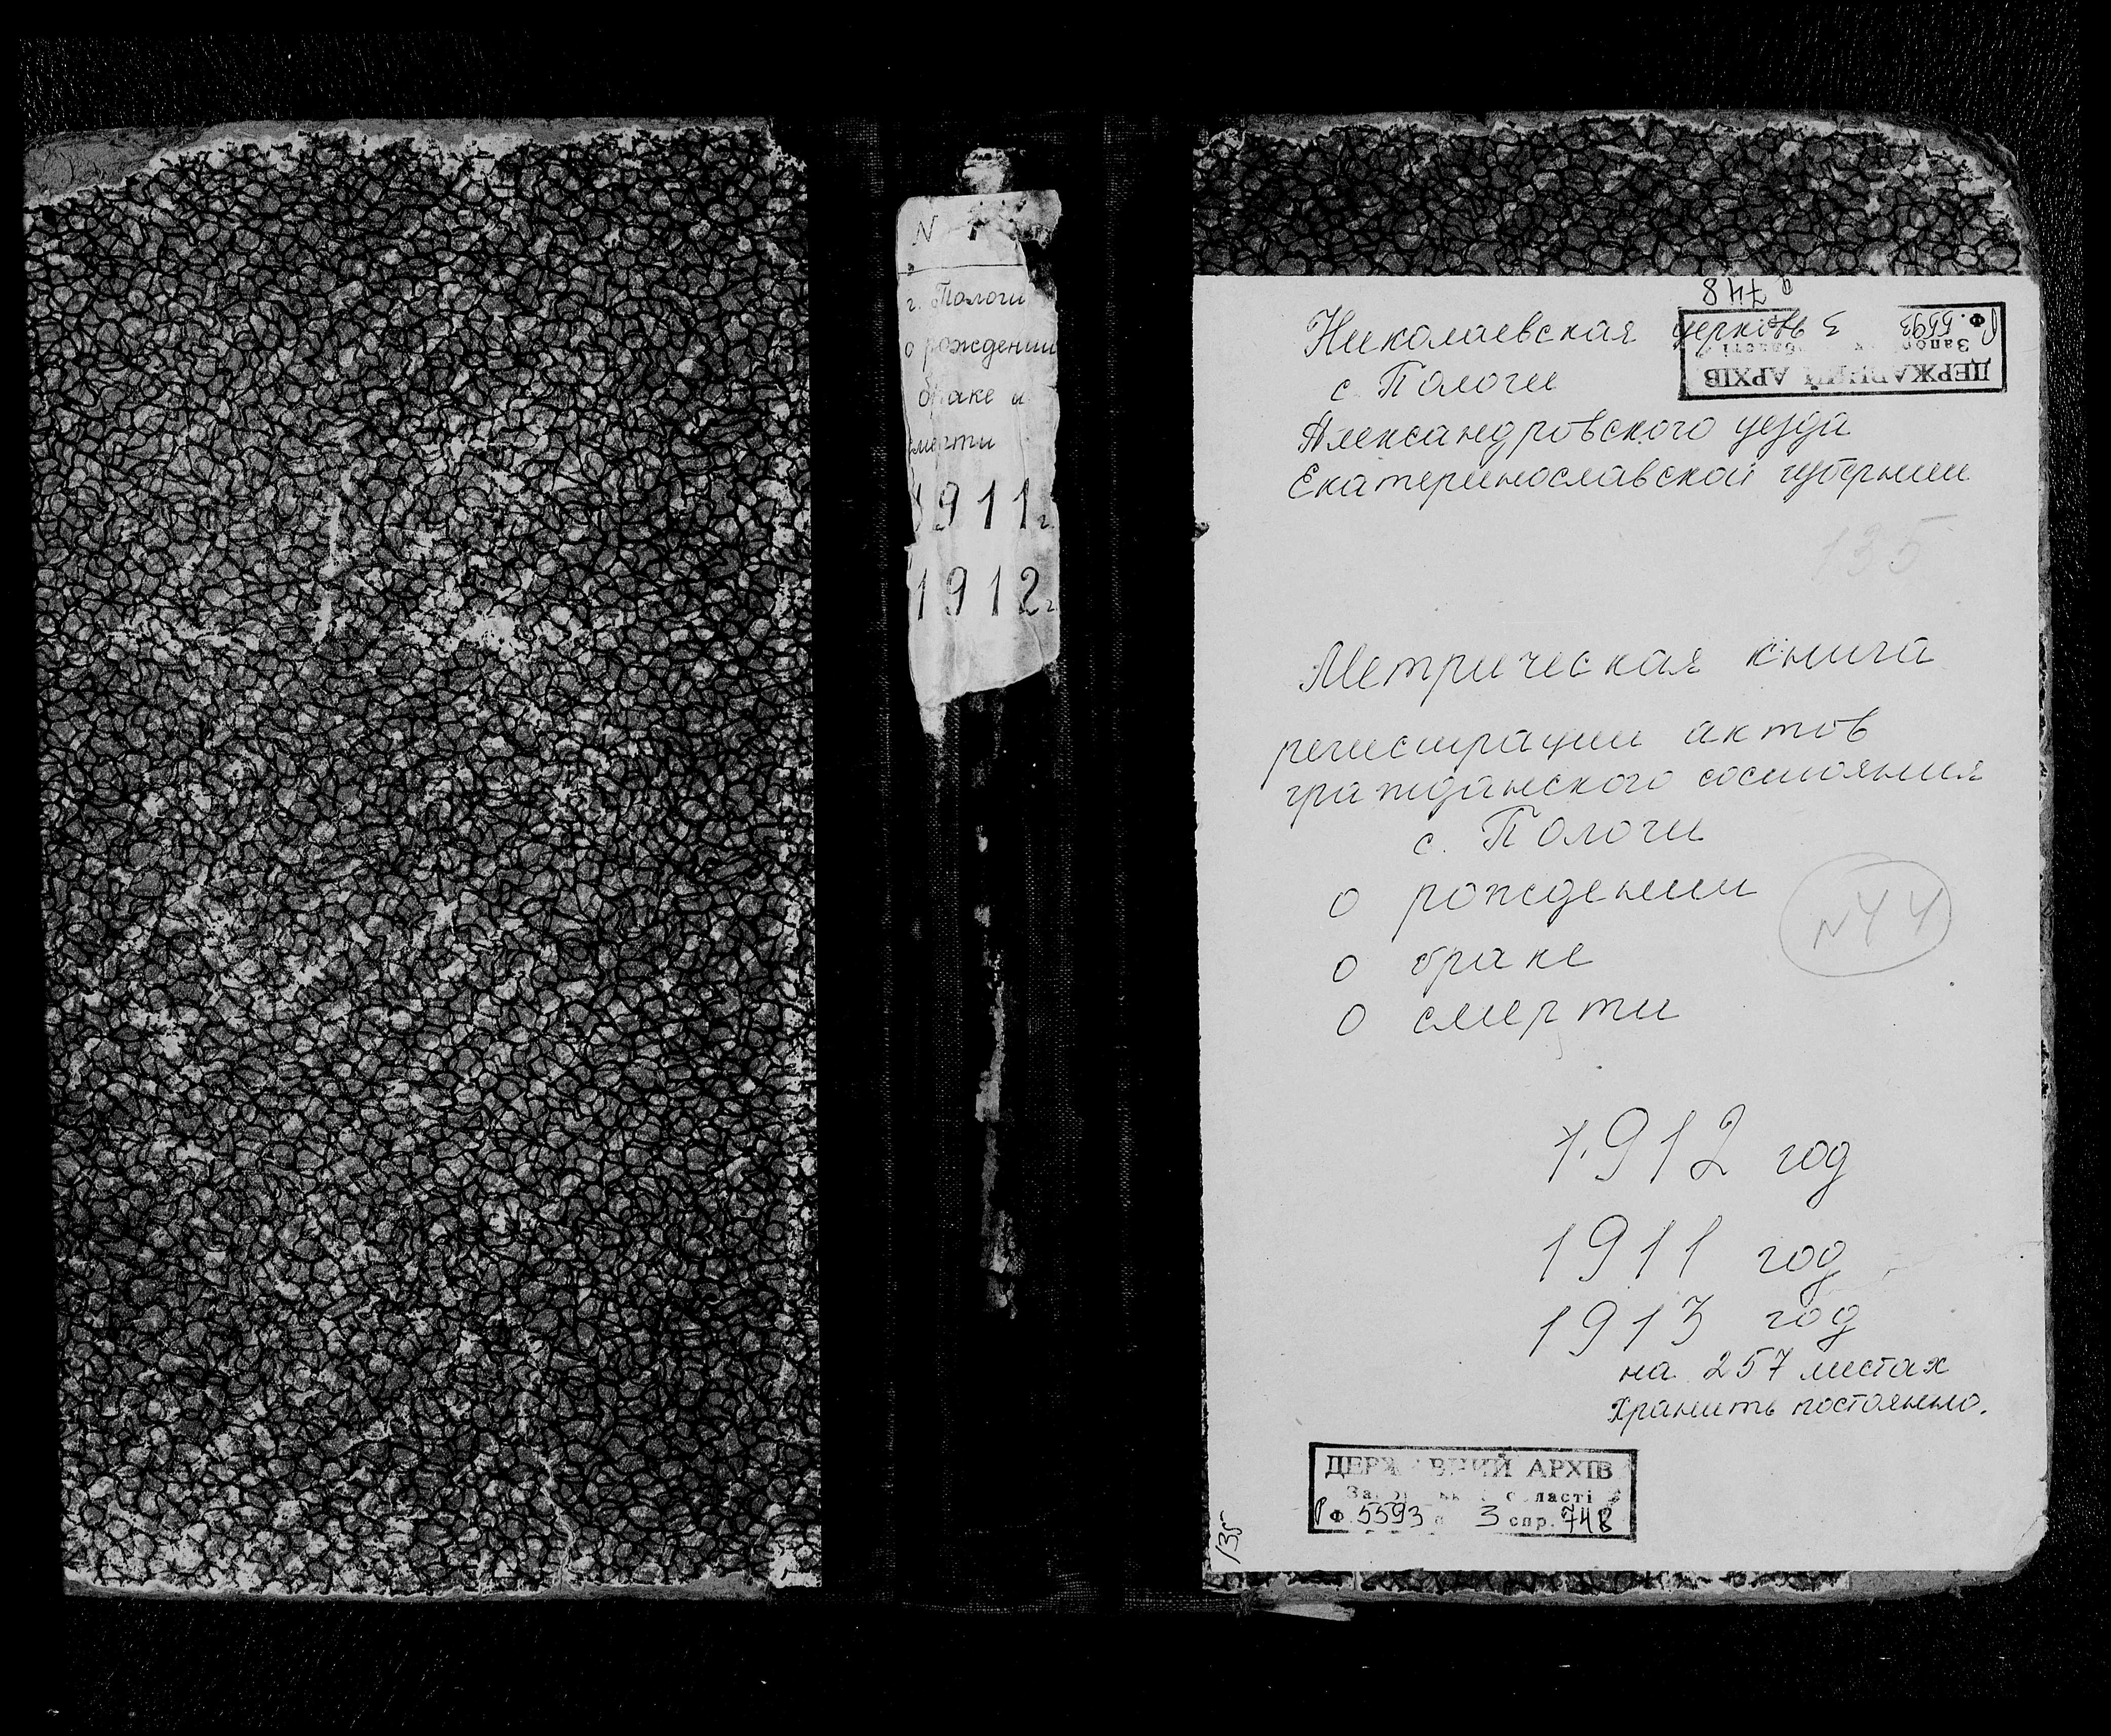 N
г. Пологи
о рождении
браке и
смерти
1911г
1912г
748
Ф. 5593 3
ДЕРЖАВНИЙ АРХІВ
Николаевская церковь
с. Пологи
Александровского уезда
Екатеринославской губернии
135
Метрическая книга
регистрации актов
гражданского состояния
с. Пологи
о рождении
N44
о браке
о смерти
1912 год
1911 год
1913 год
на 257 листах
Хранить постоянно.
ДЕРЖАВНИЙ АРХІВ
області
Р Ф 5593 3 спр. 748
135